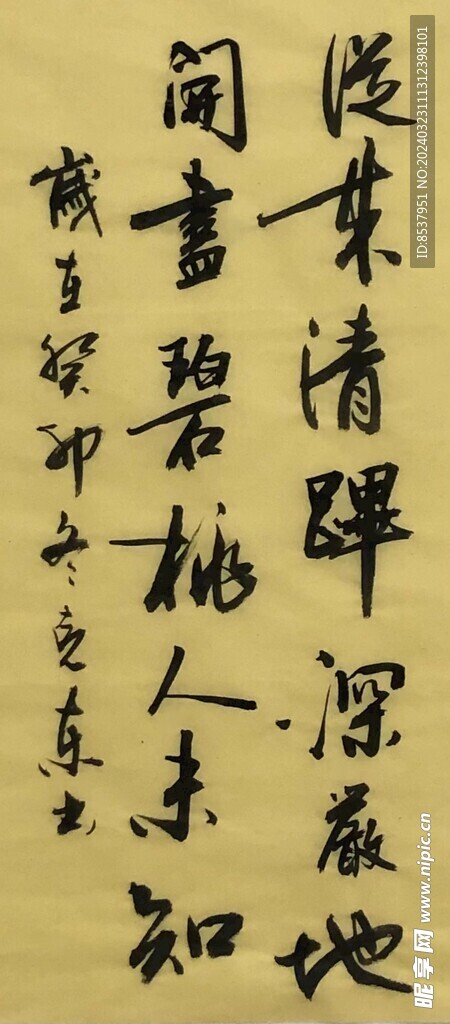 從来清蹕深嚴地
開盡碧桃人未知
歲在癸卯冬克東书
ID:8537951 NO:20240323111312398101
昵享网 www.nipic.cn